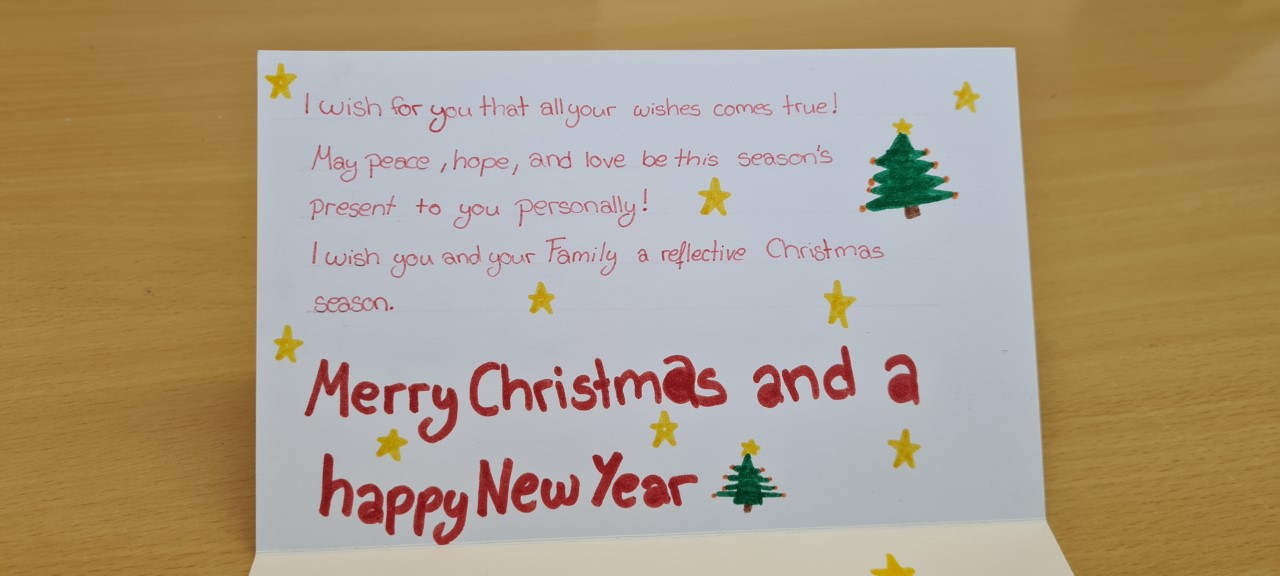 I wish for you that all your wishes comes true!
May peace, hope, and love be this season's
present to you personally!
I wish you and your Family a reflective Christmas
season.
Merry Christmas and a
happy New Year